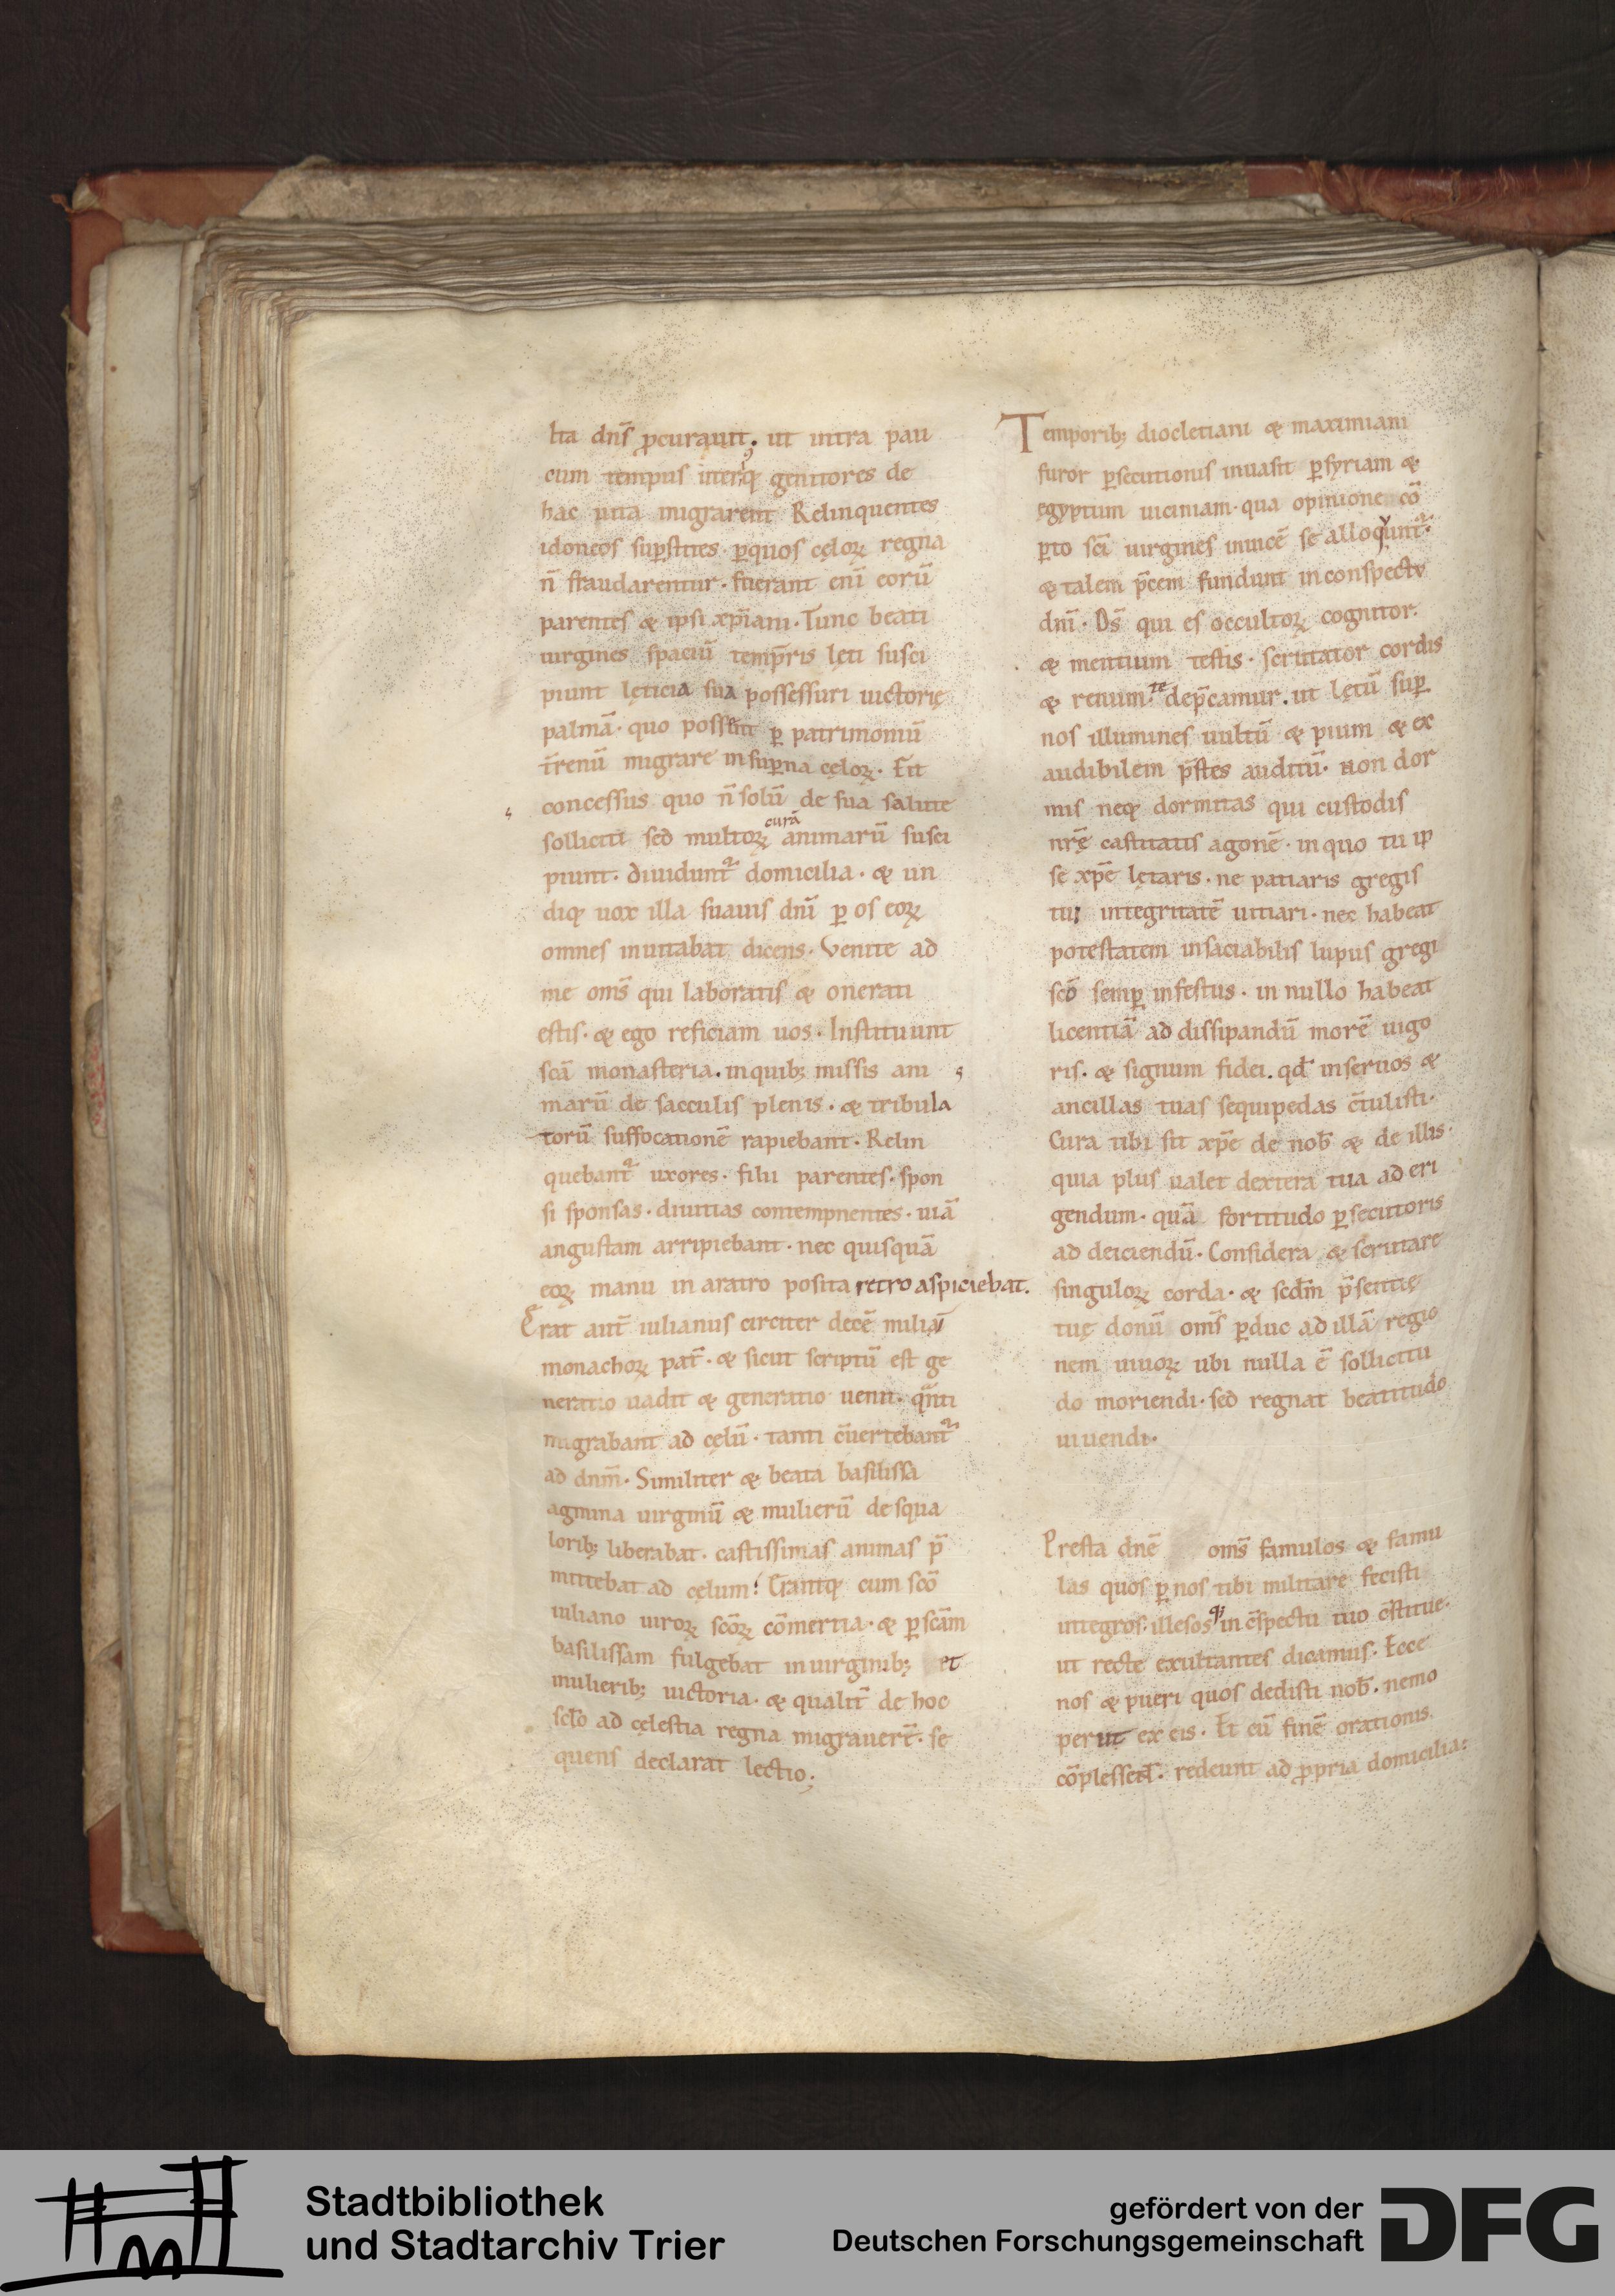 lia dns̄ ꝓcurauit. ut intra pau
cum tempus uterq; genitores de
hac uita migrarent Relinquentes
idoneos sup̱stites · ꝑquos cęloꝝ regna
n̄ fraudarentur · fuerant eni̅ eoru̅
parentes & ipsi xp̅iani · Tunc beati
uirgines spaciu̅ temp̅ris lęti susci
piunt lęticia sua possessuri uictorię
palma̅ · quo possent ꝑ patrimoniu̅
t̅renu̅ migrare insuꝑna cęloꝝ · Fit
concessus quo n̄ solu̅ de sua salute
solliciti sed multoꝝ cura̅ animaru̅ susci
piunt · diuidunt᷑ domicilia · & un
diq; uox illa suauis dni̅ ꝑ os eoꝝ
omnes inuitabat dicens · Venite ad
me oms̅ qui laboratis & onerati
estis · & ego reficiam uos · Instituunt
sc̅a monasteria . inquib; missis ani
maru̅ de sacculis plenis . & tribula
toru̅ suffocatione̅ rapiebant · Relin
quebant᷑ uxores · filii parentes · spon
si sponsas · diuitias contempnentes · uia̅
angustam arripiebant · nec quisqua̅
eoꝝ manu in aratro posita retro aspiciebat.
Erat aut̅ iulianus circiter dece̅ miliu̅
monachoꝝ pat̅ · & sicut scriptu̅ est ge
neratio uadit & generatio uenit · qn̅ti
migrabant ad cęlu̅ · tanti c̅uertebant᷑
ad dnm̅ · Similiter & beata basilissa
agmina uirginu̅ & mulieru̅ de squa
lorib; liberabat · castissimas animas p̅
mittebat ad cęlum ! Erantq; cum sc̅o
iuliano uiroꝝ sc̅oꝝ co̅mertia · & ꝑ sc̅am
basilissam fulgebat inuirginib; et
mulierib; uictoria · & qualit̅ de hoc
sclo̅ ad cęlestia regna migrauer̅t · se
quens declarat lectio ;
Temporib; diocletiani & maximiani
furor ꝑsecutionis inuasit ꝑsyriam &
egyptum uiciniam · qua opinione co̅
ꝑto sci̅ uirgines inuice̅ se alloquunt᷑ ·
& talem p̅cem fundunt inconspectu
dni̅ · Ds̅ qui es occultoꝝ cognitor ·
& mentium testis · scrutator cordis
& renum · te dep̅camur . ut lętu̅ suꝑ
nos illumines uultu̅ & pium & ex
audibilem p̅stes auditu̅ · non dor
mis neq; dormitas qui custodis
nr̅ę castitatis agone̅ · in quo tu ip
se xp̅e lętaris · ne patiaris gregis
tui integritate̅ uitiari · nec habeat
potestatem insaciabilis lupus gregi
sc̅o semꝑ infestus · in nullo habeat
licentia̅ ad dissipandu̅ more̅ uigo
ris · & signum fidei . qd̅ inseruos &
ancillas tuas sequipedas c̅tulisti ·
Cura tibi sit xp̅e de nob̅ & de illis ·
quia plus ualet dextera tua ad eri
gendum · qua̅ fortitudo ꝑsecutoris
ad deiciendu̅ · Considera & scrutare
singuloꝝ corda · & scd̅m p̅sentię
tuę donu̅ oms̅ ꝑduc ad illa̅ regio
nem uiuoꝝ ubi nulla e̅ sollicitu
do moriendi · sed regnat beatitudo
uiuendi ·
Presta dne̅ oms̅ famulos & famu
las quos ꝑ nos tibi militare fecisti
integros · illesosq; in c̅spectu tuo c̅stitue ·
ut recte exultantes dicamus · Ecce
nos & pueri quos dedisti nob̅ · nemo
periit ex eis · Et cu̅ fine̅ orationis
co̅plessent · redeunt ad ꝓpria domicilia :
Stadtbibliothek
und Stadtarchiv Trier
gefördert von der
Deutschen Forschungsgemeinschaft
DFG